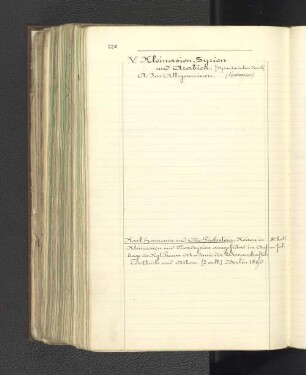 226
V. Kleinasien. Syrien
und Arabien.
A. Im Allgemeinen.
Karl Humann und Otto Puchstein, Reisen in
Kleinasien und Nordsyrien ausgeführt im Auf-
trage der Kgl. Preuss. Akademie der Wissenschaften
Textband und Atlas. Berlin 1890